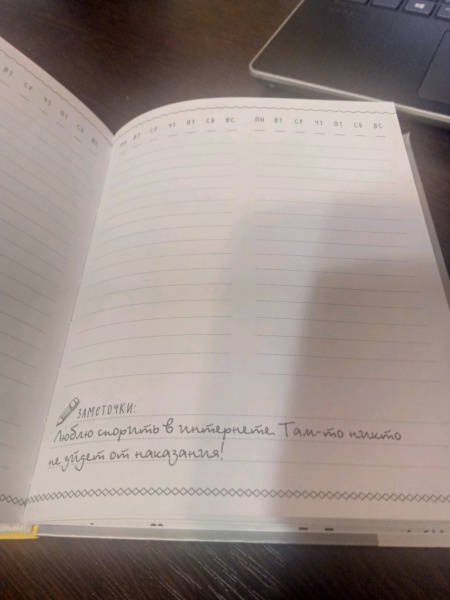 ВТ СР ЧТ ПТ СБ ВС
ПН ВТ СР ЧТ ПТ СБ ВС
ПН ВТ СР ЧТ ПТ СБ ВС
ЗАМЕТОЧКИ:
Люблю спорить в интернете. Там-то никто
не уйдет от наказания!